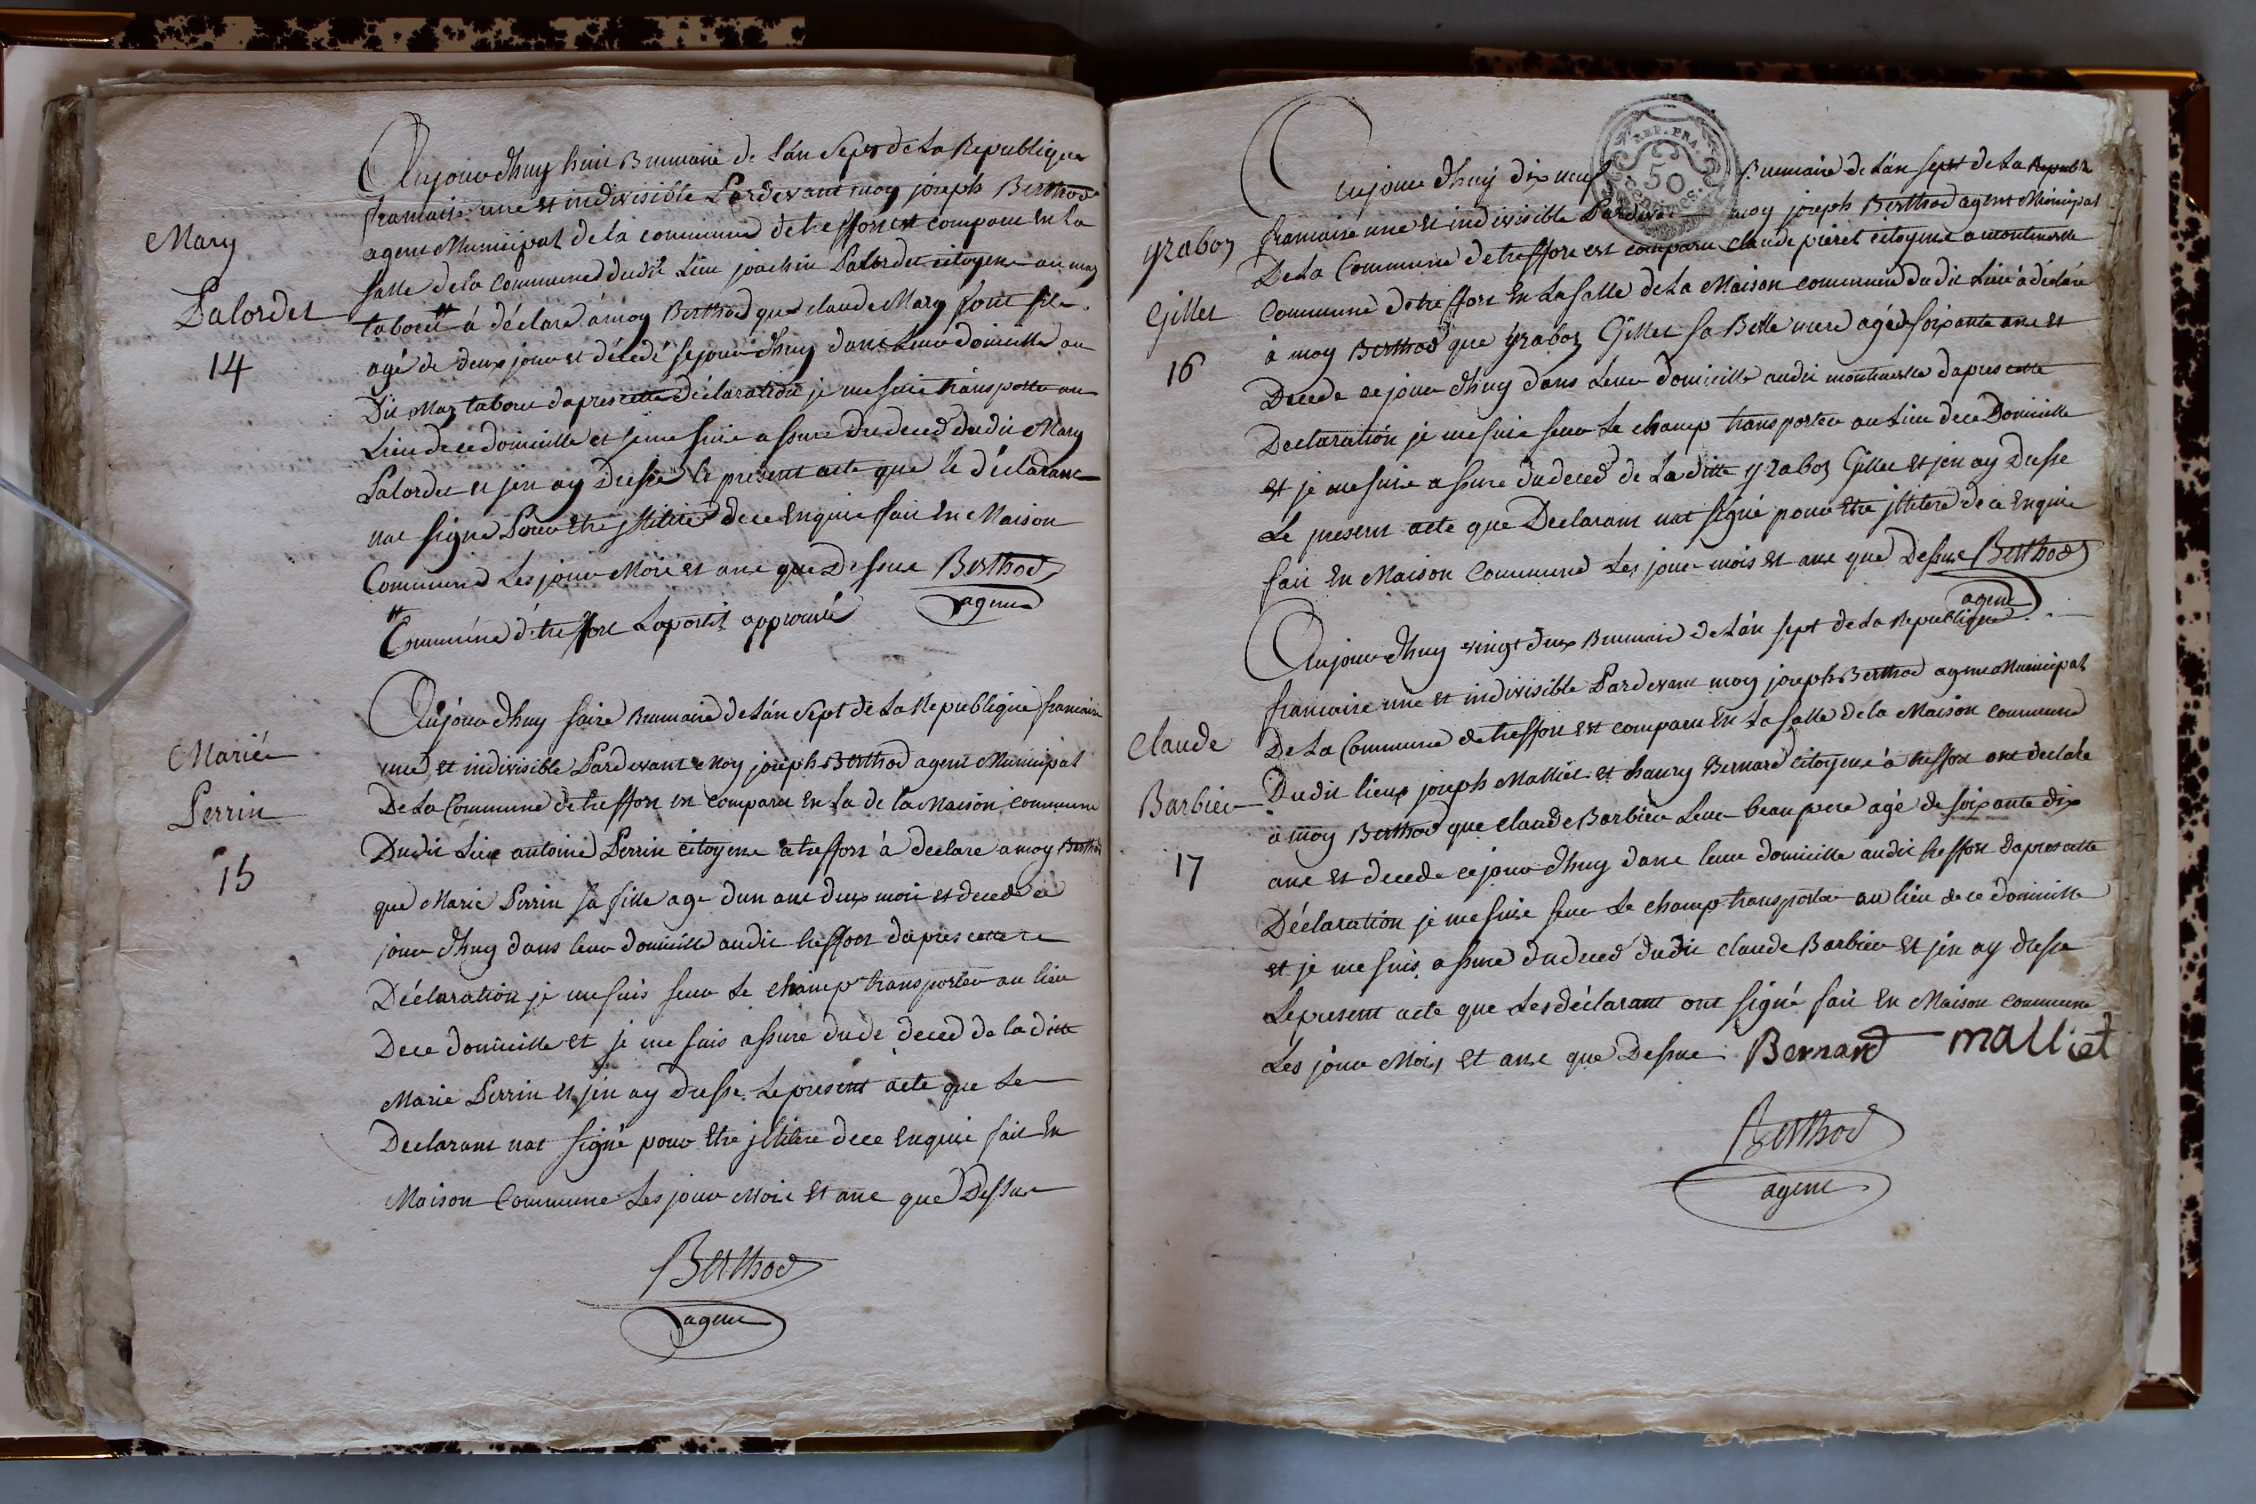 Mary
Palordet
14
Aujourdhuy huit Brumaire de Lán Sept de La Republique
francaise une et indivisible Pardevant moy joseph Berthod
agent Municipal de la commune de treffort est comparu En La
salle de la Commune dudit Lieu joachin Palordet citoyene au maz
tabouet à déclaré à moy Berthod que claude Mary sont fils
agé de deux jour et décédé sejourdhuy dans Leur domicille au
Dit Maz tabouet dapres cette déclaration je me suis transporter au
Lieu de ce domicille et je me suis assuré du deced dudit Mary
Palordet et jen ay Dressé le present acte que le déclarant
nat signe Pour etre jlitéré de ce Enquis fait En Maison
Commune Les jour Mois et ans que Dessus Berthod
agent
Commune dé treffort Laportit approuvé
Marié
Perrin
15
Aujourdhuy saize Brumaire de Lán Sept de La Republique francaise
une et indivisible Pardevant Moy joseph Berthod agent Municipal
De La Commune de treffort est comparu En La de la Maison commune
Dudit Lieu antoine Perrin citoyene a treffort à declare a moy Berthod
que Marie Perrin sa fille age dun ans deux mois et decedé ce
jour dhuy dans leur domicille audit treffort dapres cette
Déclaration je me suis seur Le champ transporter au lieu
De ce domicille et je me suis assuré du de deced de la ditte
Marie Perrin et jen ay dresse Le present acte que Le
Declarant nat signé pour Etre jlitere de ce Enquis fait En
Maison Commune Les jour Mois et ans que Dessus
Berthod
agent
REP. FRA.
50
yzaboz
Gillet
16
Aujourdhuy dix neuf Brumaire de Lán sept de La Republi
francaise une et indivisible Pardeva moy joseph Berthod agent Municipal
De La Commune de treffort est comparu claude pieret citoyene a montmerle
Commune de treffort En La salle de La Maison commune dudit Lieu à déclaré
à moy Berthod que yzaboz Gillet sa Belle mere agéd soixante ans et
Decede ce jour dhuy dans Leur domicille audit montmerle dapres cette
Declaration je me suis seur Le champ transporter au Lieu de ce Domicille
et je me suis assure du deced de La ditte yzaboz Gillet et jen ay Dresse
Le present acte que Declarant nat signé pour être jlitéré de ce Enquis
fait En Maison Commune Les jour mois et ans que Dessus Berthod
agent
Claude
Barbier
17
Aujourdhuy vingt deux Brumaire de Lán sept de La Republique
francaise une et indivisible Pardevant moy joseph Berthod agent Municipal
De La Commune de treffort est comparu En La salle de la Maison commune
Dudit lieux joseph Malliet et Bernard citoyene à treffort ont déclaré
a moy Berthod que claude Barbier Leur beau pere agé de soixante dix
ans et decede ce jour dhuy dans leur domicille audit treffort dapres cette
Déclaration je me suis seur Le champ transporter au lieu de ce domicille
et je me suis assuré du deced dudit claude Barbier et jen ay dresse
Le present acte que Les déclarant ont signé fait En Maison commune
Les jour Mois et ans que Dessus Bernard malliet
Berthod
agent